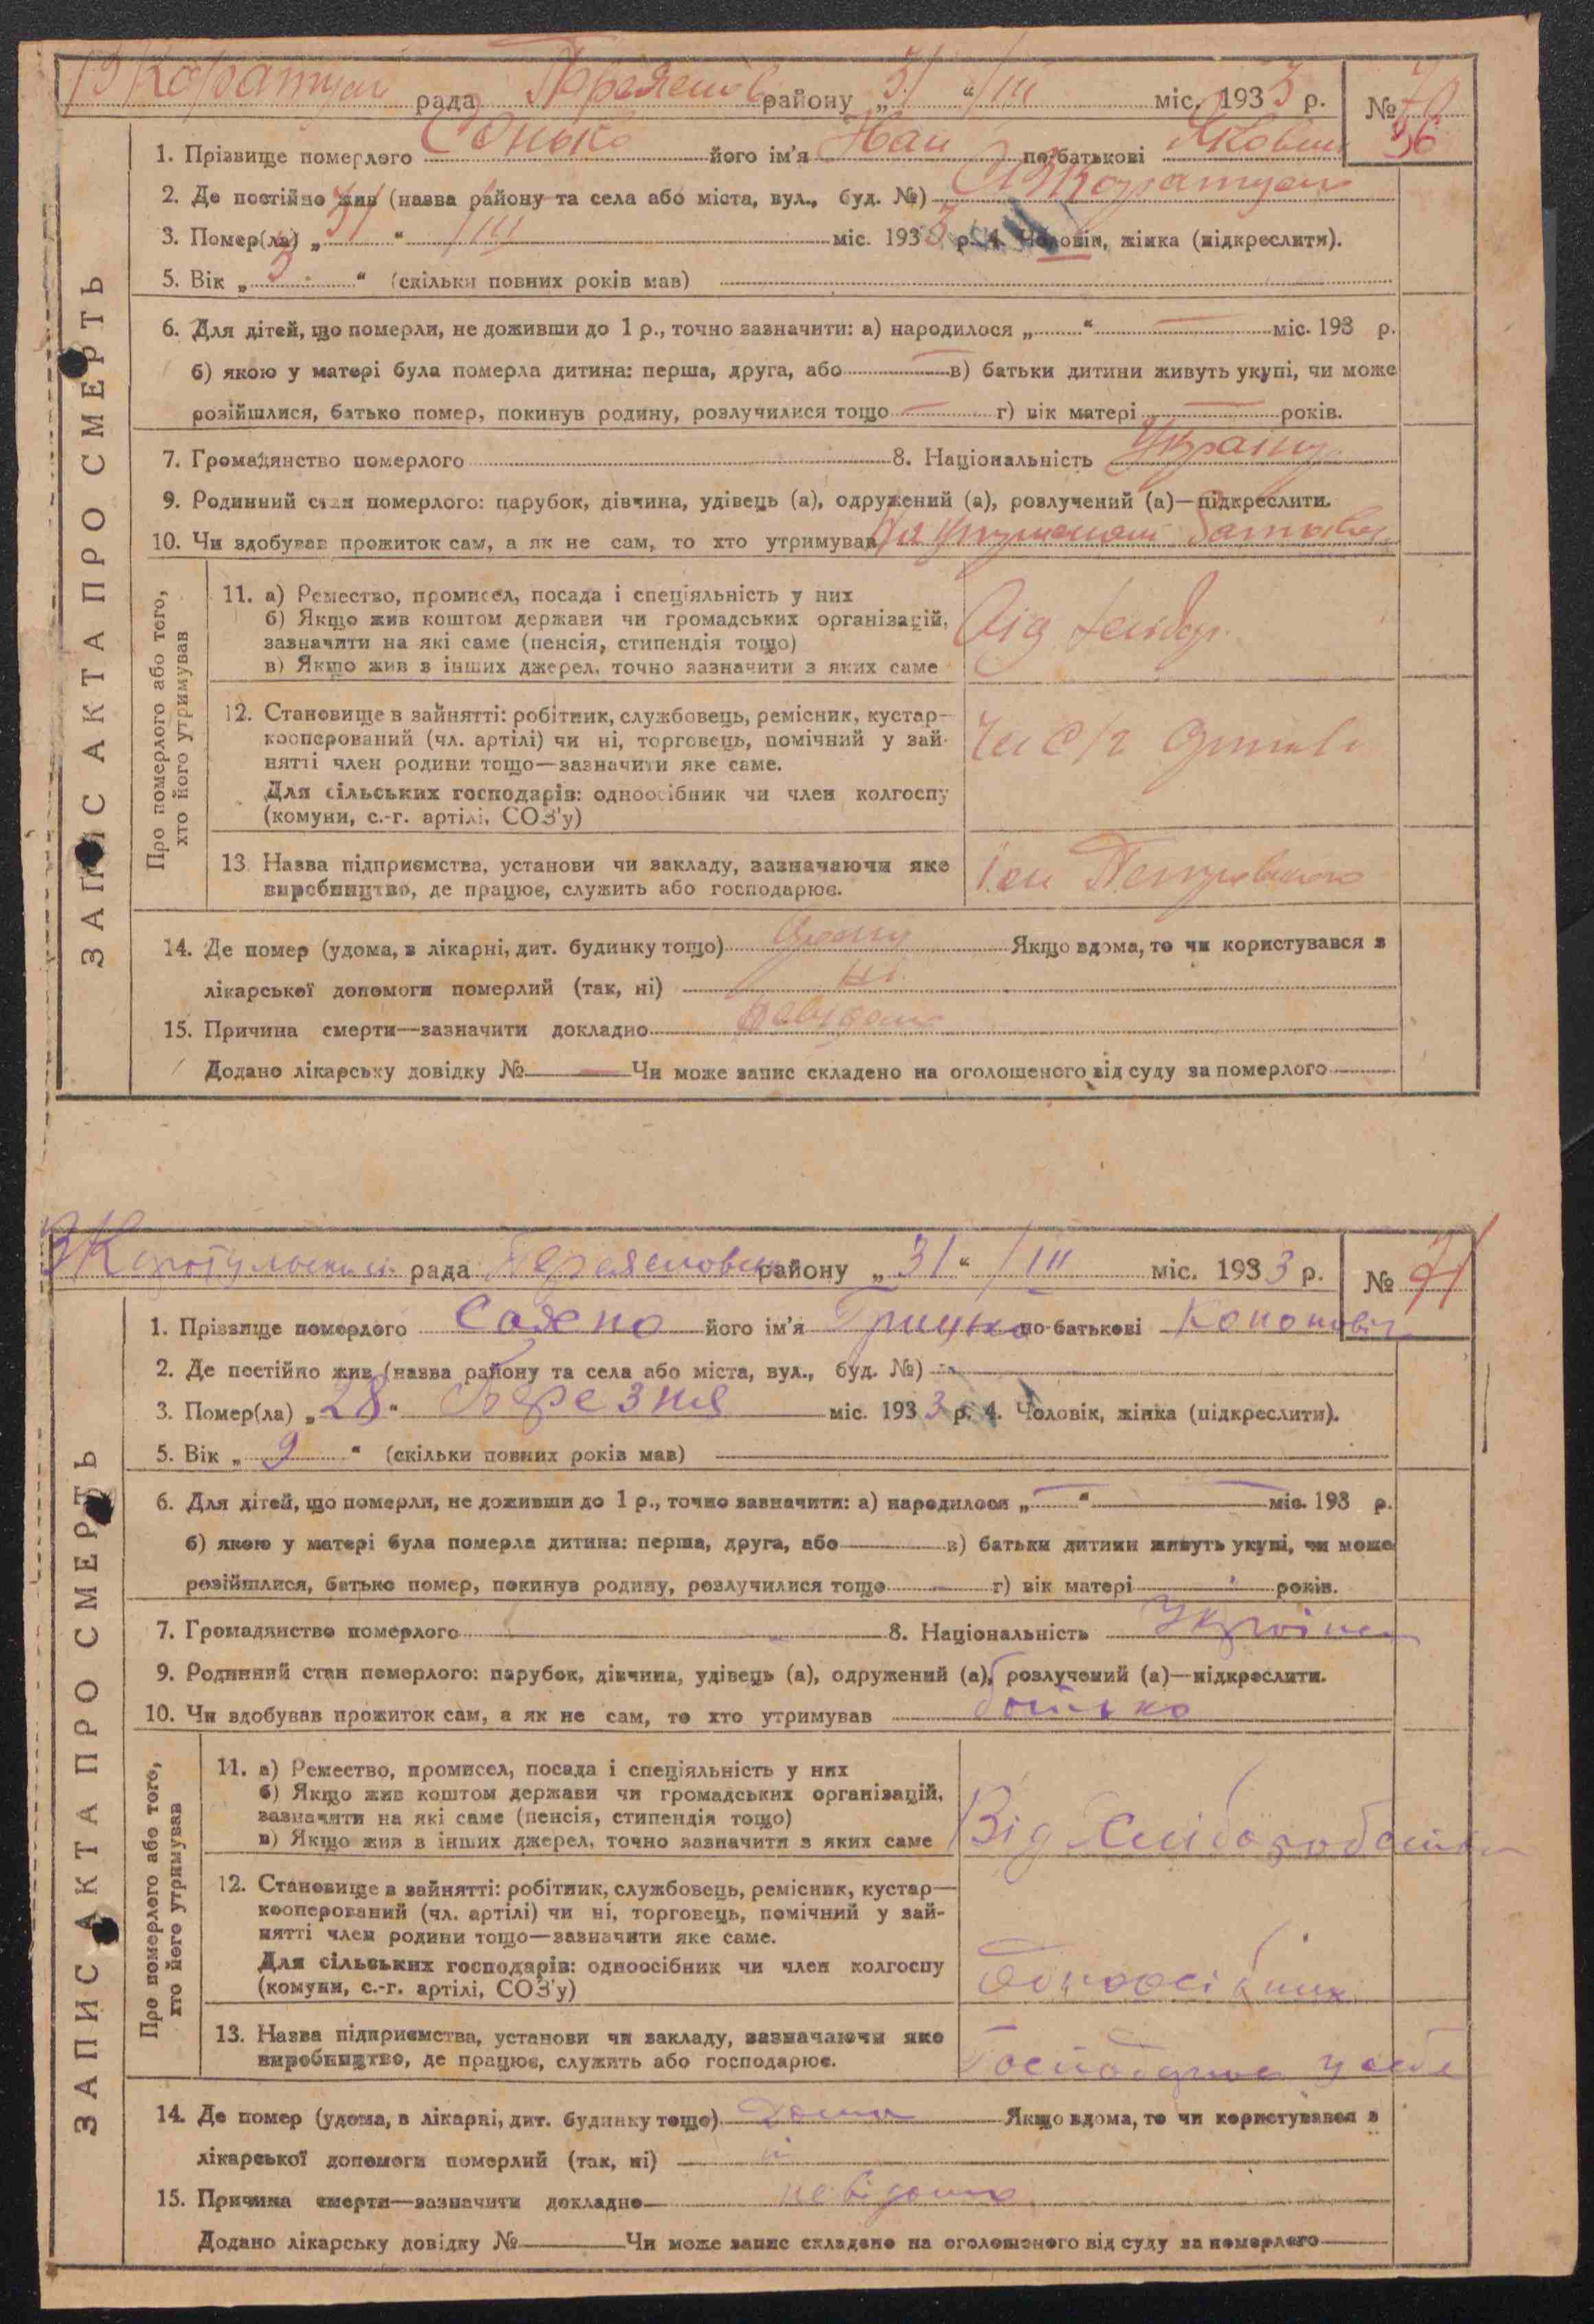 рада Переяслів району „31“ /III міс. 1933 р. № 70
1. Прізвище померлого його ім'я Іван по батькові 36
2. Де постійно жив (назва району та села або міста, вул., буд. №)
3. Помер(ла) „31“ /III міс. 1933 р. 4. Чоловік, жінка (підкреслити).
5. Вік „3“ (скільки повних років мав)
6. Для дітей, що померли, не доживши до 1 р., точно зазначити: а) народилося „ “ міс. 193 р.
б) якою у матері була померла дитина: перша, друга, або в) батьки дитини живуть укупі, чи може
розійшлися, батько помер, покинув родину, розлучилися тощо г) вік матері років.
7. Громадянство померлого 8. Національність
9. Родинний стан померлого: парубок, дівчина, удівець (а), одружений (а), розлучений (а)—підкреслити.
10. Чи здобував прожиток сам, а як не сам, то хто утримував
ЗАПИС АКТА ПРО СМЕРТЬ
Про померлого або того, хто його утримував
11. а) Ремество, промисел, посада і спеціяльність у них
б) Якщо жив коштом держави чи громадських організацій,
зазначити на які саме (пенсія, стипендія тощо)
в) Якщо жив з інших джерел, точно зазначити з яких саме
Від
12. Становище в зайнятті: робітник, службовець, ремісник, кустар—
кооперований (чл. артілі) чи ні, торговець, помічний у зай-
нятті член родини тощо—зазначити яке саме.
Для сільських господарів: одноосібник чи член колгоспу
(комуни, с.-г. артілі, СОЗ'у)
13. Назва підприємства, установи чи закладу, зазначаючи яке
виробництво, де працює, служить або господарює.
14. Де помер (удома, в лікарні, дит. будинку тощо) Якщо вдома, то чи користувався з
лікарської допомоги померлий (так, ні) ні
15. Причина смерти—зазначити докладно невідомо
Додано лікарську довідку № Чи може запис складено на оголошеного від суду за померлого
рада району „31“ /III міс. 1933 р. № 71
1. Прізвище померлого Сахно його ім'я Грицько по-батькові Кононовіч
2. Де постійно жив (назва району та села або міста, вул., буд. №)
3. Помер(ла) „28“ березня міс. 1933 р. 4. Чоловік, жінка (підкреслити).
5. Вік „9“ (скільки повних років мав)
6. Для дітей, що померли, не доживши до 1 р., точно зазначити: а) народилося „ “ міс. 193 р.
б) якою у матері була померла дитина: перша, друга, або в) батьки дитини живуть укупі, чи може
розійшлися, батько помер, покинув родину, розлучилися тощо г) вік матері років.
7. Громадянство померлого 8. Національність
9. Родинний стан померлого: парубок, дівчина, удівець (а), одружений (а), розлучений (а)—підкреслити.
10. Чи здобував прожиток сам, а як не сам, то хто утримував батько
ЗАПИС АКТА ПРО СМЕРТЬ
Про померлого або того, хто його утримував
11. а) Ремество, промисел, посада і спеціяльність у них
б) Якщо жив коштом держави чи громадських організацій,
зазначити на які саме (пенсія, стипендія тощо)
в) Якщо жив з інших джерел, точно зазначити з яких саме
Від
12. Становище в зайнятті: робітник, службовець, ремісник, кустар—
кооперований (чл. артілі) чи ні, торговець, помічний у зай-
нятті член родини тощо—зазначити яке саме.
Для сільських господарів: одноосібник чи член колгоспу
(комуни, с.-г. артілі, СОЗ'у)
Одноосібник
13. Назва підприємства, установи чи закладу, зазначаючи яке
виробництво, де працює, служить або господарює.
14. Де помер (удома, в лікарні, дит. будинку тощо) Дома Якщо вдома, то чи користувався з
лікарської допомоги померлий (так, ні)
15. Причина смерти—зазначити докладно невідомо
Додано лікарську довідку № Чи може запис складено на оголошеного від суду за померлого